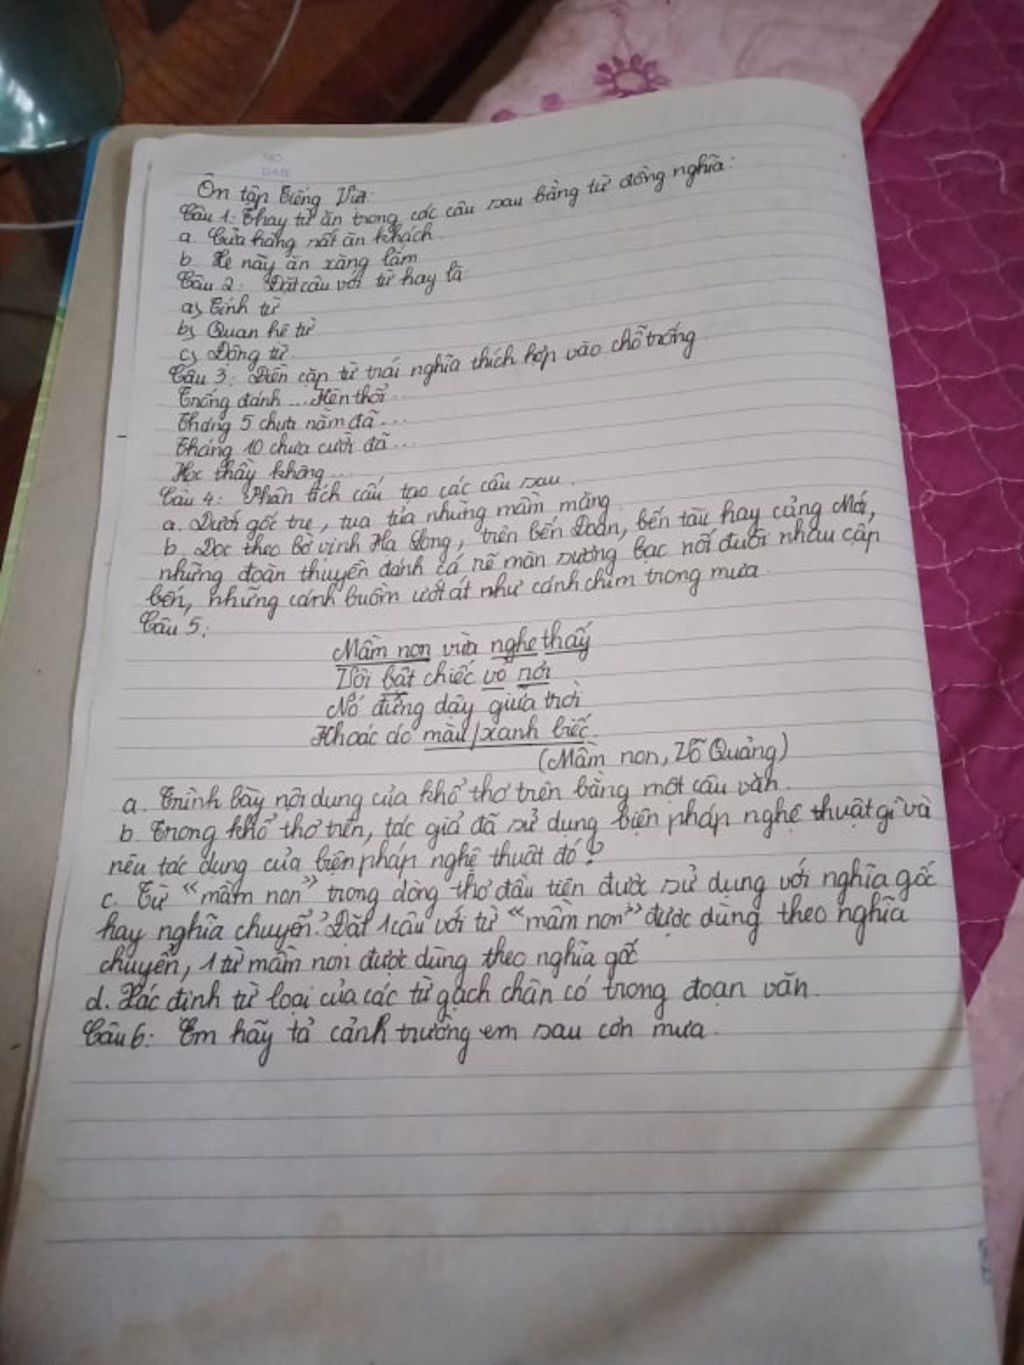 Ôn tập Tiếng Việt:
Câu 1: Thay từ ăn trong các câu sau bằng từ đồng nghĩa:
a. Cửa hàng rất ăn khách
b. Xe này ăn xăng lắm
Câu 2: Đặt câu với từ hay là:
a, Tính từ
b, Quan hệ từ
c, Động từ.
Câu 3: Điền cặp từ trái nghĩa thích hợp vào chỗ trống
Trống đánh ... Kèn thổi...
Tháng 5 chưa nằm đã...
Tháng 10 chưa cười đã...
Học thầy không...
Câu 4: Phân tích cấu tạo các câu sau.
a. Dưới gốc tre, tua tủa những mầm măng
b. Dọc theo bờ vịnh Hạ Long, trên bến Đoan, bến tàu hay cảng Mới,
những đoàn thuyền đánh cá rẽ màn sương bạc nối đuôi nhau cập
bến, những cánh buồm ướt át như cánh chim trong mưa.
Câu 5:
Mầm non vừa nghe thấy
Vội bật chiếc vỏ rơi
Nó đứng dậy giữa trời
Khoác áo màu/xanh biếc.
(Mầm non, Võ Quảng)
a. Trình bày nội dung của khổ thơ trên bằng một câu văn.
b. Trong khổ thơ trên, tác giả đã sử dụng biện pháp nghệ thuật gì và
nêu tác dụng của biện pháp nghệ thuật đó?
c. Từ "mầm non" trong dòng thơ đầu tiên được sử dụng với nghĩa gốc
hay nghĩa chuyển? Đặt 1 câu với từ "mầm non" được dùng theo nghĩa
chuyển, 1 từ mầm non được dùng theo nghĩa gốc
d. Xác định từ loại của các từ gạch chân có trong đoạn văn.
Câu 6: Em hãy tả cảnh trường em sau cơn mưa.